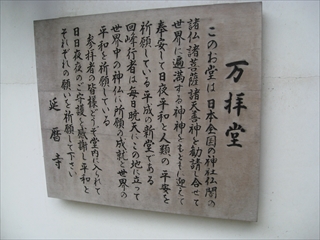 万拝堂
このお堂は日本全国の神社仏閣の
諸仏諸菩薩諸天善神を勧請し合せて
世界に遍満する神神をもともに迎えて
奉安して日夜平和と人類の平安を
祈願している平成の新堂である
回峰行者は毎日晩天にこの地に立って
世界中の神仏に所願の成就と世界の
平和を祈願している
参拝者の皆様どうぞ堂内に入られて
日日夜夜のご守護を感謝し平和と
それぞれの願いを祈願して下さい
延暦寺